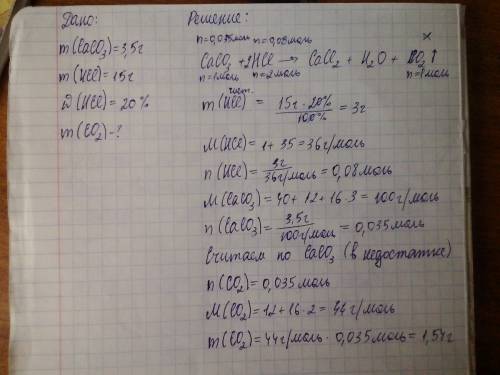 Дано:
m(CaCO₃)=3,5г
m(HCl)=15г
W(HCl)=20%
m(CO₂)-?
Решение:
n=0,035моль n=0,08моль x
CaCO₃ + 2HCl → CaCl₂ + H₂O + CO₂↑
n=1моль n=2моль n=1моль
m(HCl)чист. = 15г · 20% / 100% = 3г
M(HCl) = 1 + 35 = 36г/моль
n(HCl) = 3г / 36г/моль = 0,08моль
M(CaCO₃) = 40 + 12 + 16 · 3 = 100г/моль
n(CaCO₃) = 3,5г / 100г/моль = 0,035моль
Считаем по CaCO₃ (в недостатке)
n(CO₂) = 0,035моль
M(CO₂) = 12 + 16 · 2 = 44г/моль
m(CO₂) = 44г/моль · 0,035моль = 1,54г